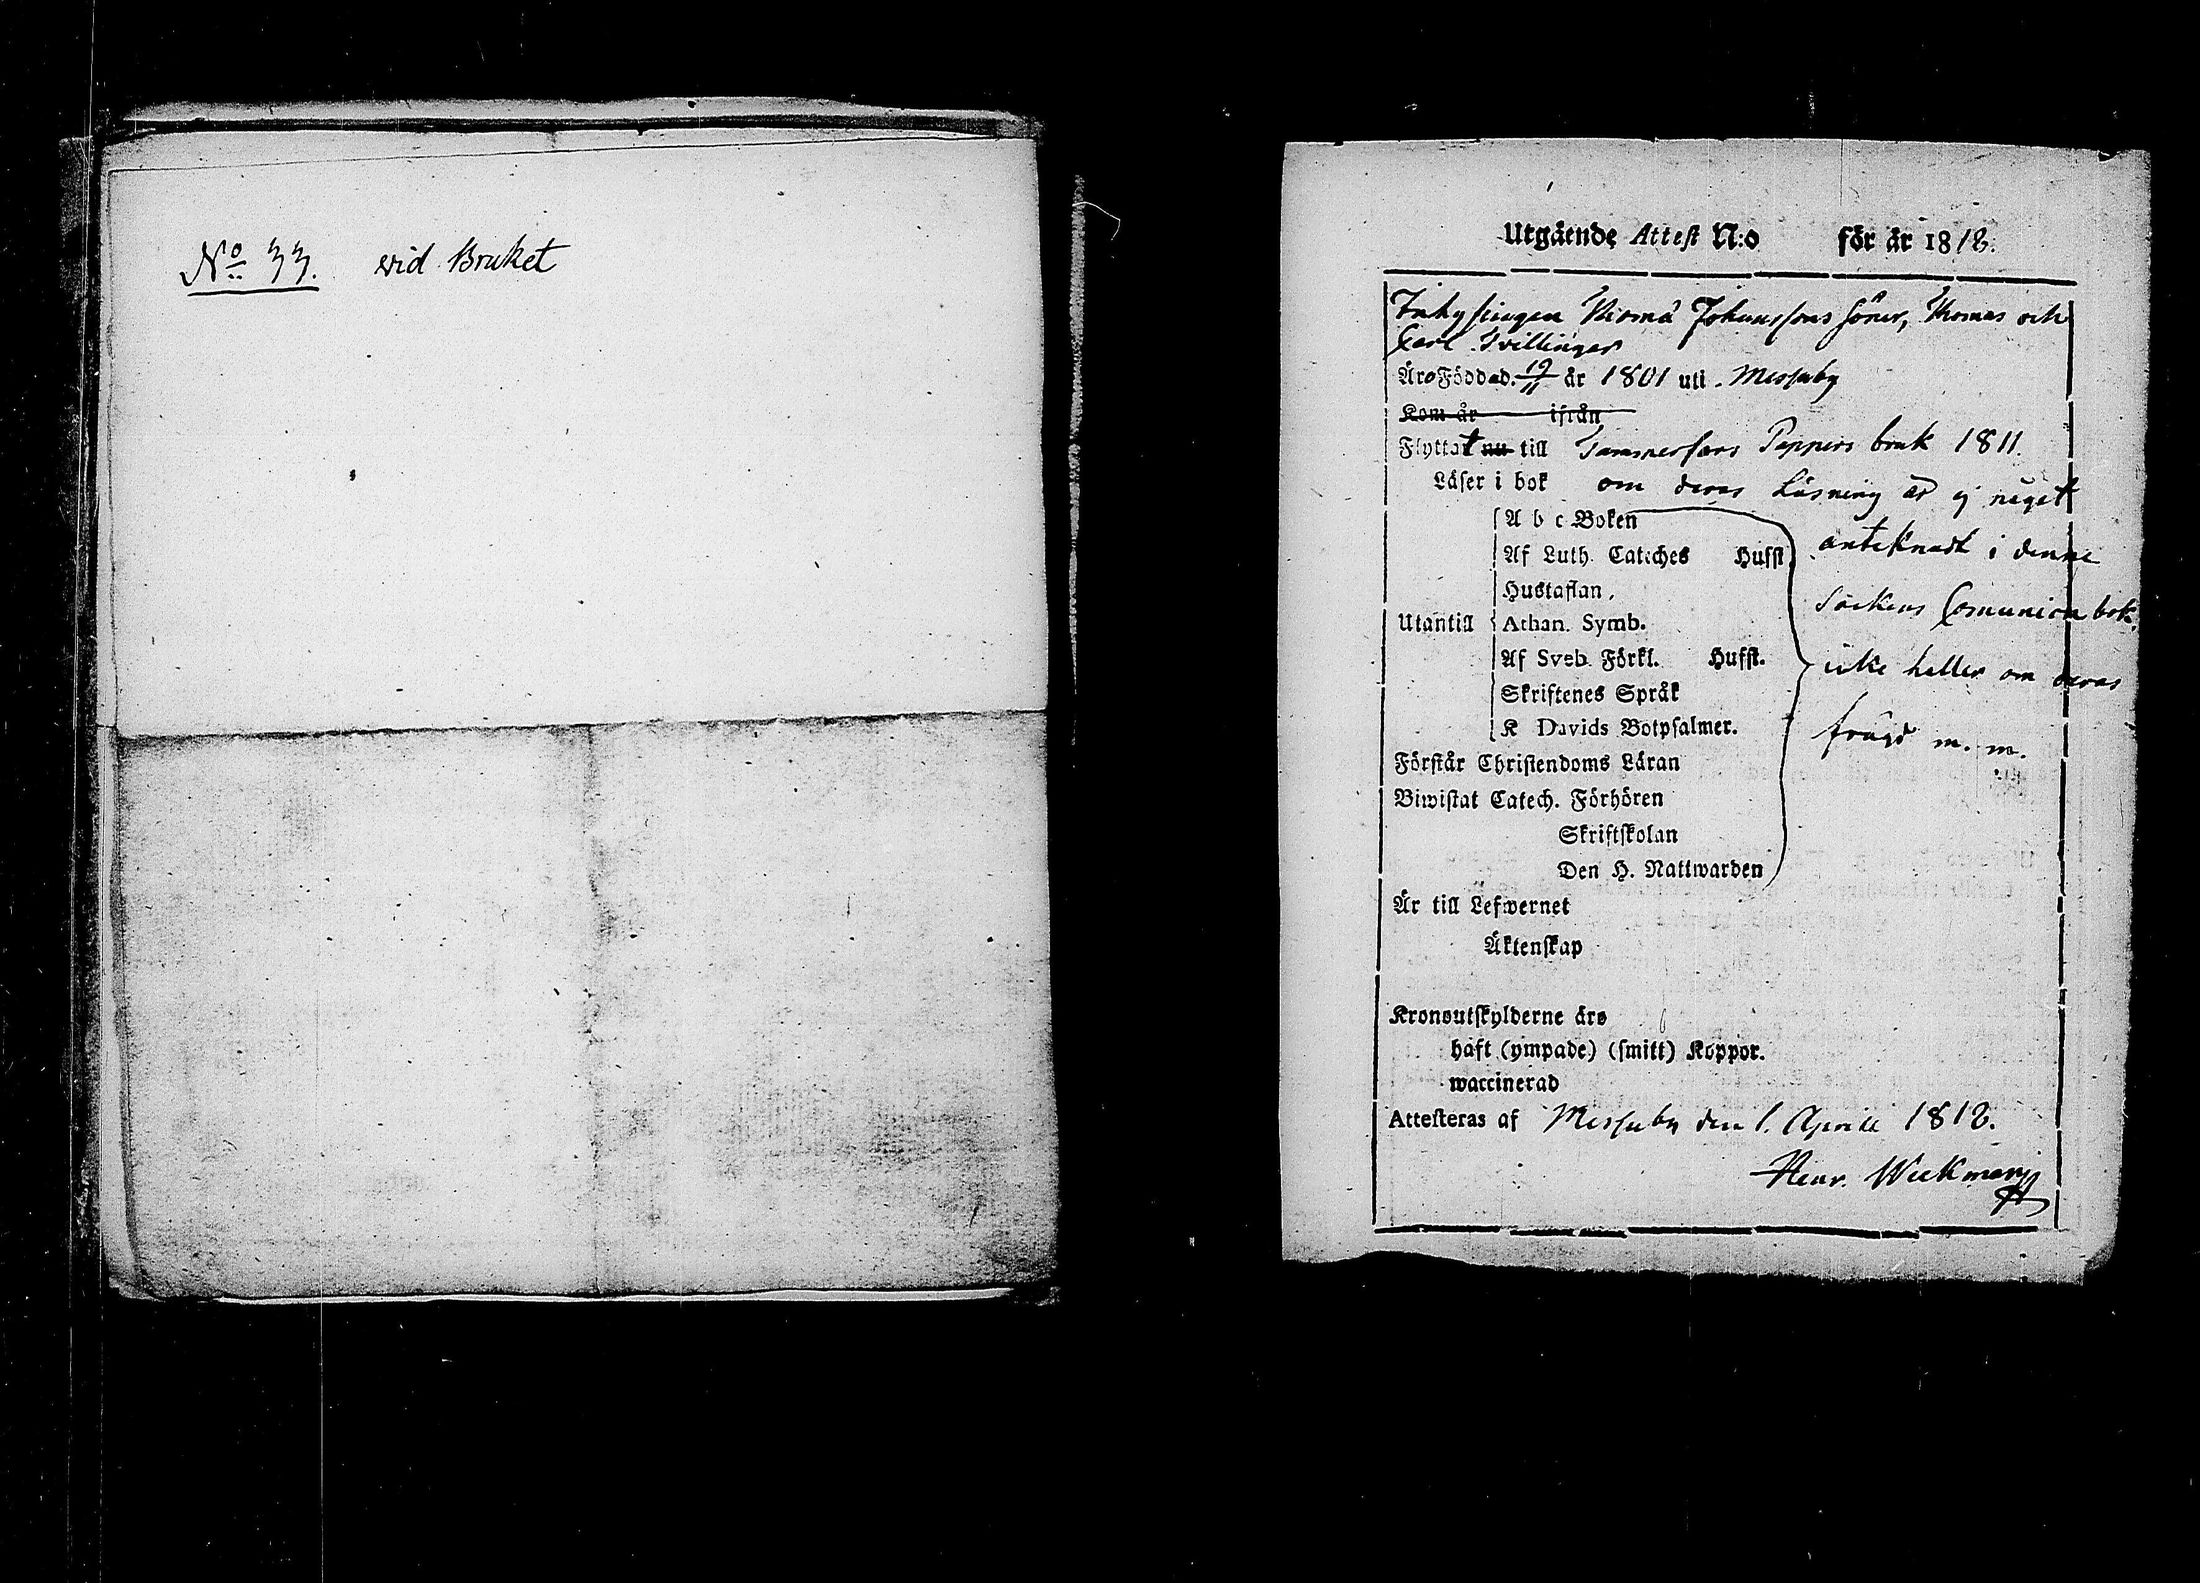 No 33. vid Bruket
Utgående Attest N:o för år 1818.
Inhysingen Johanssons söner, Thomas och
Carl Tvillingar
Äro Födda d. 19/11 år 1801 uti Messuby
Kom år ifrån
Flyttat nu till Tammerfors Pappers bruk 1811.
Läser i bok om deras Läsning är ej något
A b c Boken
antecknadt i denne
Af Luth. Cateches Hufst
Hustaflan,
Sockens Communion bok,
Utantill Athan. Symb.
Af Sveb. Förkl. Hufst.
icke heller om deras
Skriftenes Språk
K Davids Botpsalmer.
frägd m. m.
Förstår Christendoms Läran
Biwistat Catech. Förhören
Skriftskolan
Den H. Nattwarden
Är till Lefwernet
Äktenskap
Kronoutskylderne äro
haft (ympade) (smitt) Koppor.
waccinerad
Attesteras af Messuby den 1. Aprill 1818.
Henr. Wickman